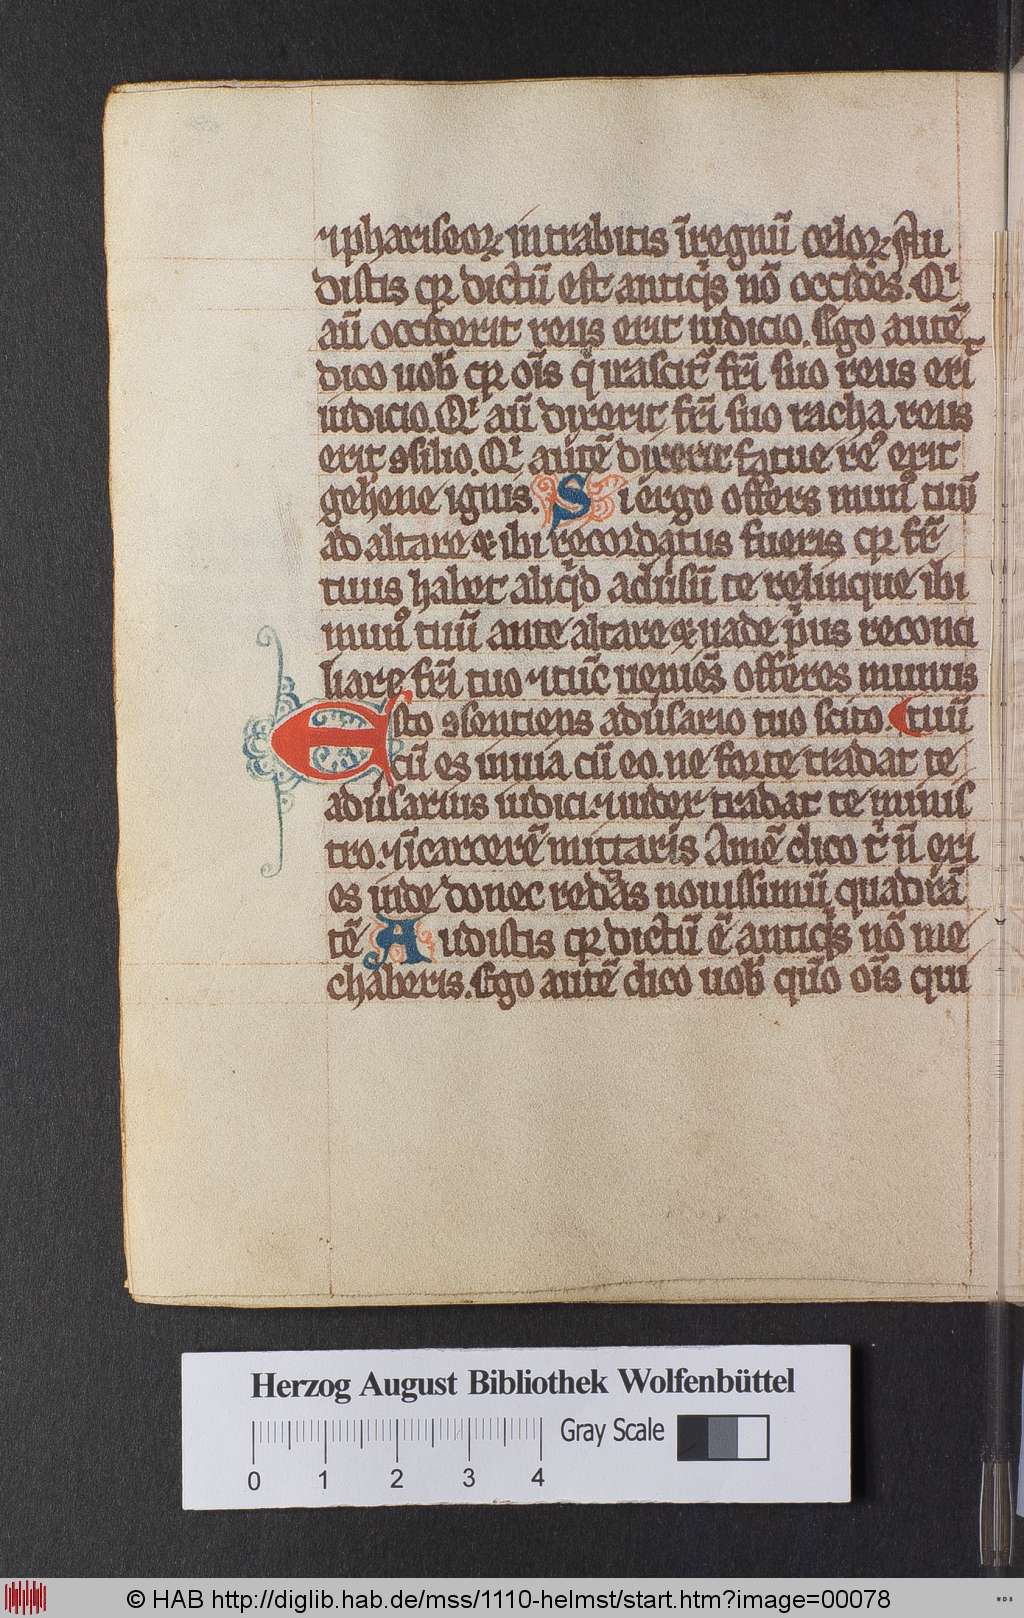 ⁊ phariseoꝝ intrabitis ī regnū celoꝝ. Au
distis qꝛ dictū est antiqͥs nō occides. Qͥ
aū occiderit reus erit iudicio. Ego autē
dico uob̄ qꝛ oīs qͥ irascit᷑ fr̄i suo reus erit
iudicio. Qͥ aū dixerit fr̄i suo racha, reus
erit ꝯsilio. Qͥ autē dixerit fatue reꝰ erit
gehene ignis. Si ergo offers munꝰ tuū
ad altare ⁊ ibi recordatus fueris qꝛ fr̄
tuus habet aliqͥd adūsū te relinque ibi
munꝰ tuū ante altare ⁊ uade pͥus reconci
liare fr̄i tuo ⁊ tūc ueniēs offeres munus
Esto ꝯsentiens adūsario tuo scito. tuū
cū es in uia cū eo. ne forte tradat te
adūsarius iudici. ⁊ iudex tradat te minis
tro. ⁊ ī carcerē mittaris Amē dico tͥ n̄ exi
es inde donec reddas nouissimū quadrā
tē Audistis qꝛ dictū ē antiqͥs nō me
chaberis. Ego autē dico uob̄ qm̄ oīs qui
Herzog August Bibliothek Wolfenbüttel
0 1 2 3 4 Gray Scale
© HAB http://diglib.hab.de/mss/1110-helmst/start.htm?image=00078